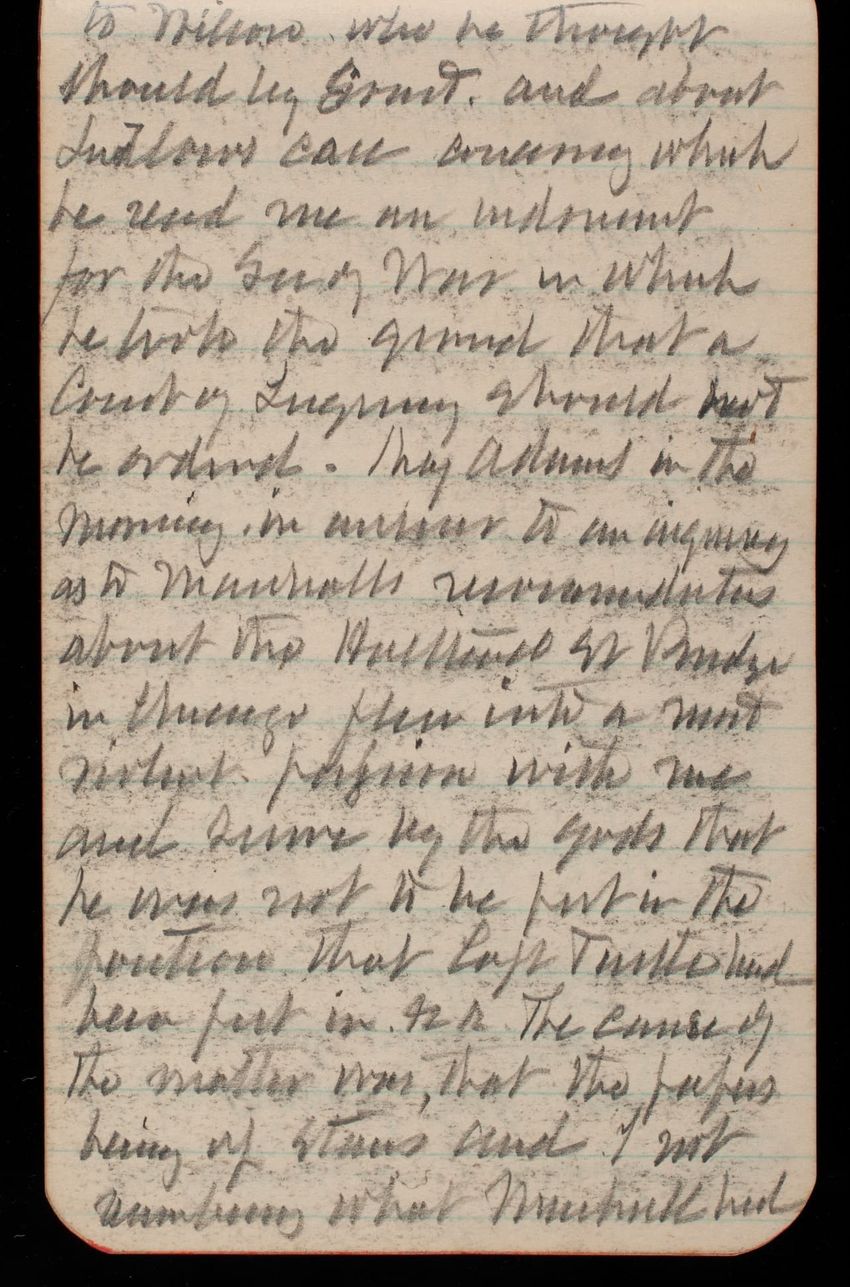 to Wilson who he thought
should by Grant. and about
Ludlows case concerning which
he read me an indorsment
for the Sec of War in which
he took the ground that a
Court of Inquiry should not
be ordered. Maj Adams in the
morning, in answer to an inquiry
as to Marshalls recommendations
about the Halsted St Bridge
in Chicago flew into a most
violent passion with me
and swore by the gods that
he was not to be put in the
position that Capt Turtle had
been put in. The cause of
the matter was, that the papers
being up Stairs and I not
remembering what Marshall had